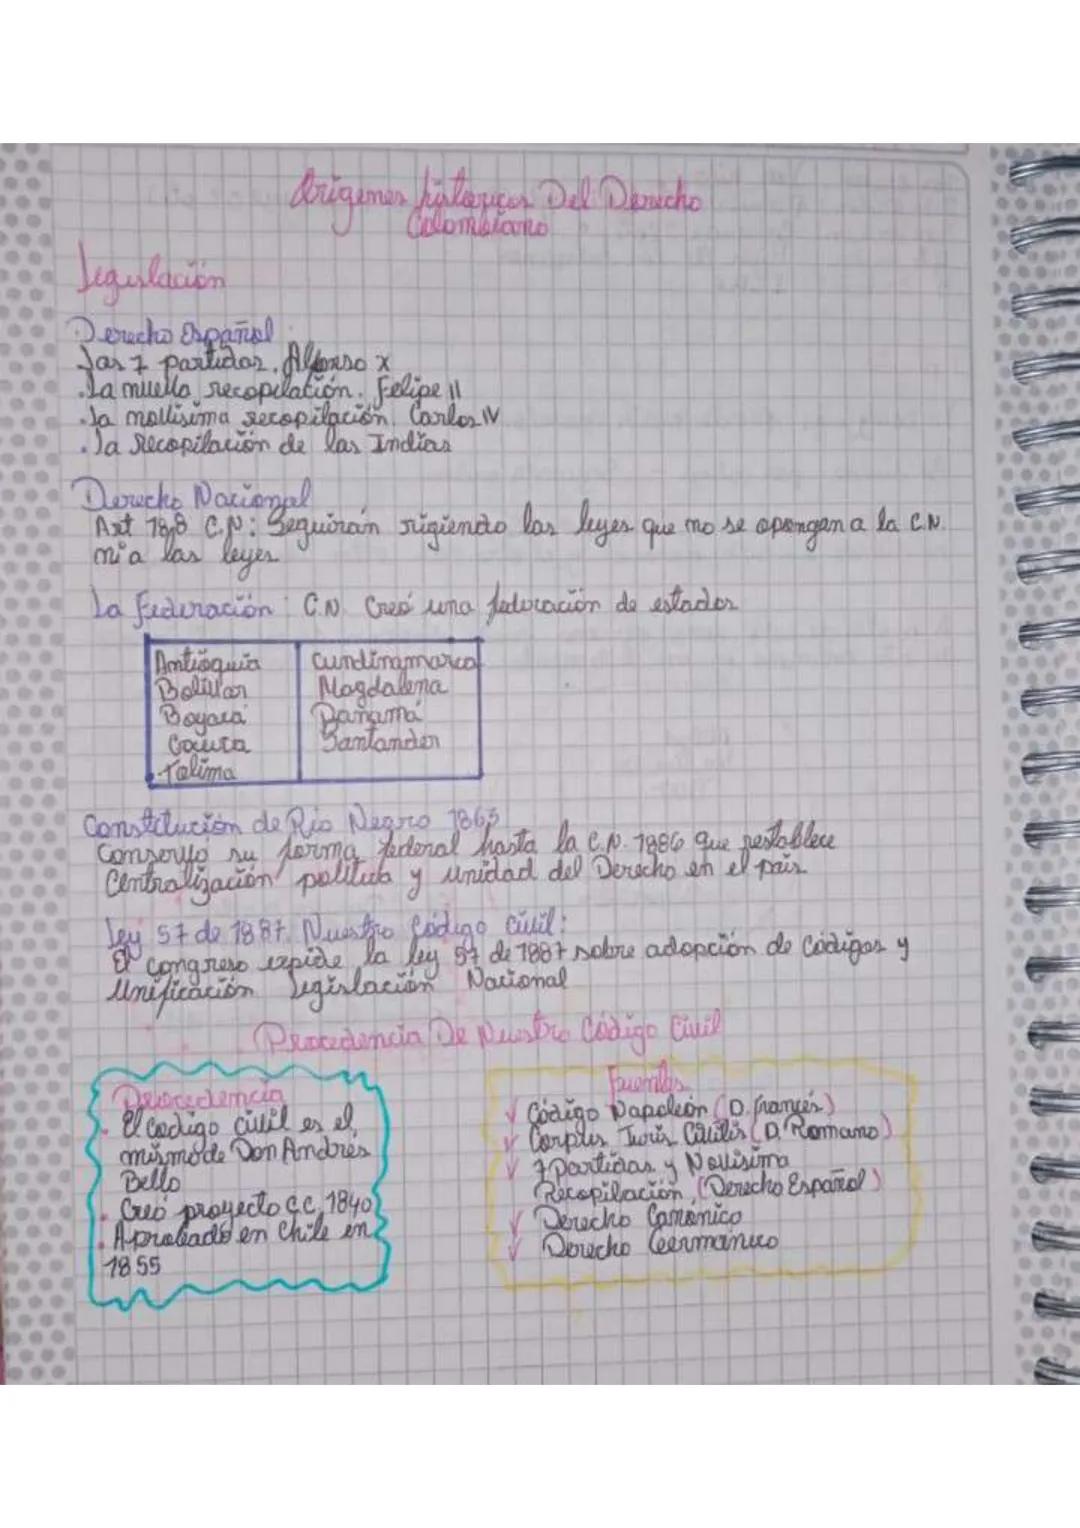 Origenes historicos Del Derecho
Colombiano
Legislación
Derecho Español
Las 7 partidas. Alfonso X
. La nueva recopilación. Felipe II
. La novísima recopilación. Carlos IV
. La Recopilación de las Indias
Derecho Nacional
Art 188 C.N: Seguirán rigiendo las leyes que no se opongan a la C.N.
ni a las leyes
La Federación: C.N. Creó una federación de estados
Antioquia Cundinamarca
Bolívar Magdalena
Boyacá Panamá
Cauca Santander
Tolima
Constitución de Río Negro 1863
Conservo su forma federal hasta la C.N. 1886 que restablece
Centralización política y unidad del Derecho en el país
Ley 57 de 1887. Nuestro Código civil:
El congreso expide la ley 57 de 1887 sobre adopción de Códigos y
Unificación Legislación Nacional
Procedencia De Nuestro Código Civil
Procedencia
. El codigo civil es el
mismo de Don Andrés
Bello
. Creó proyecto C.C, 1840
. Aprobado en Chile en
1855
Fuentes
✓ Código Napoleón (D. francés)
✓ Corpus Iuris Civilis (D. Romano)
✓ 7 Partidas y Novísima
Recopilación, (Derecho Español)
✓ Derecho Canónico
✓ Derecho Germánico